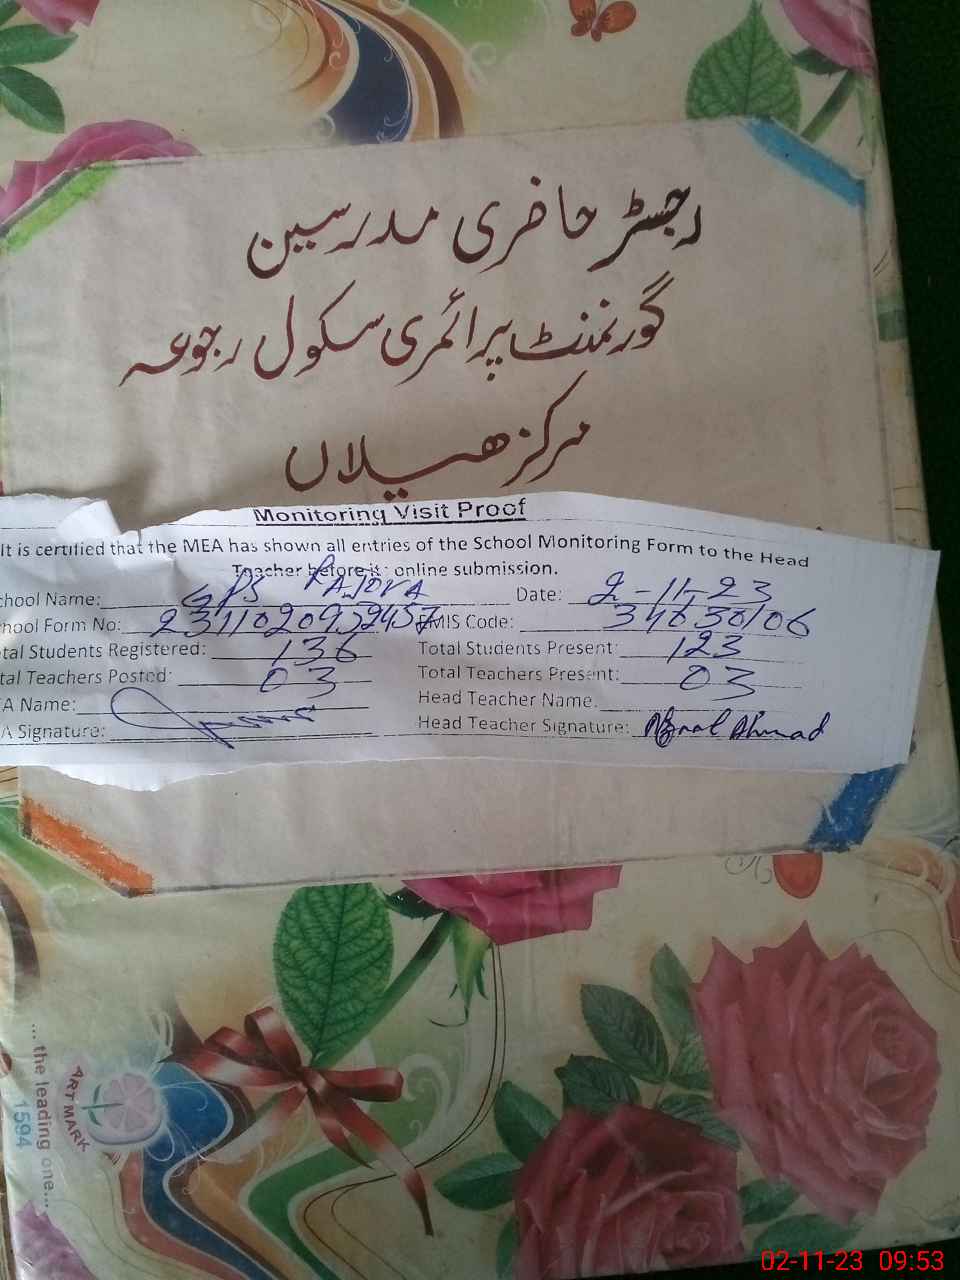 رجسٹر حاضری مدرسین
گورنمنٹ پرائمری سکول رجوعہ
مرکز ھیلاں
Monitoring Visit Proof
It is certified that the MEA has shown all entries of the School Monitoring Form to the Head
Teacher before it: online submission.
chool Name: GPS RAJOVA Date: 2-11-23
hool Form No: EMIS Code: 34630106
tal Students Registered: 136 Total Students Present: 123
tal Teachers Posted: 03 Total Teachers Present: 03
A Name: Head Teacher Name.
A Signature: Head Teacher Signature: Ahmad
... the leading one...
ART MARK
1594
02-11-23 09:53